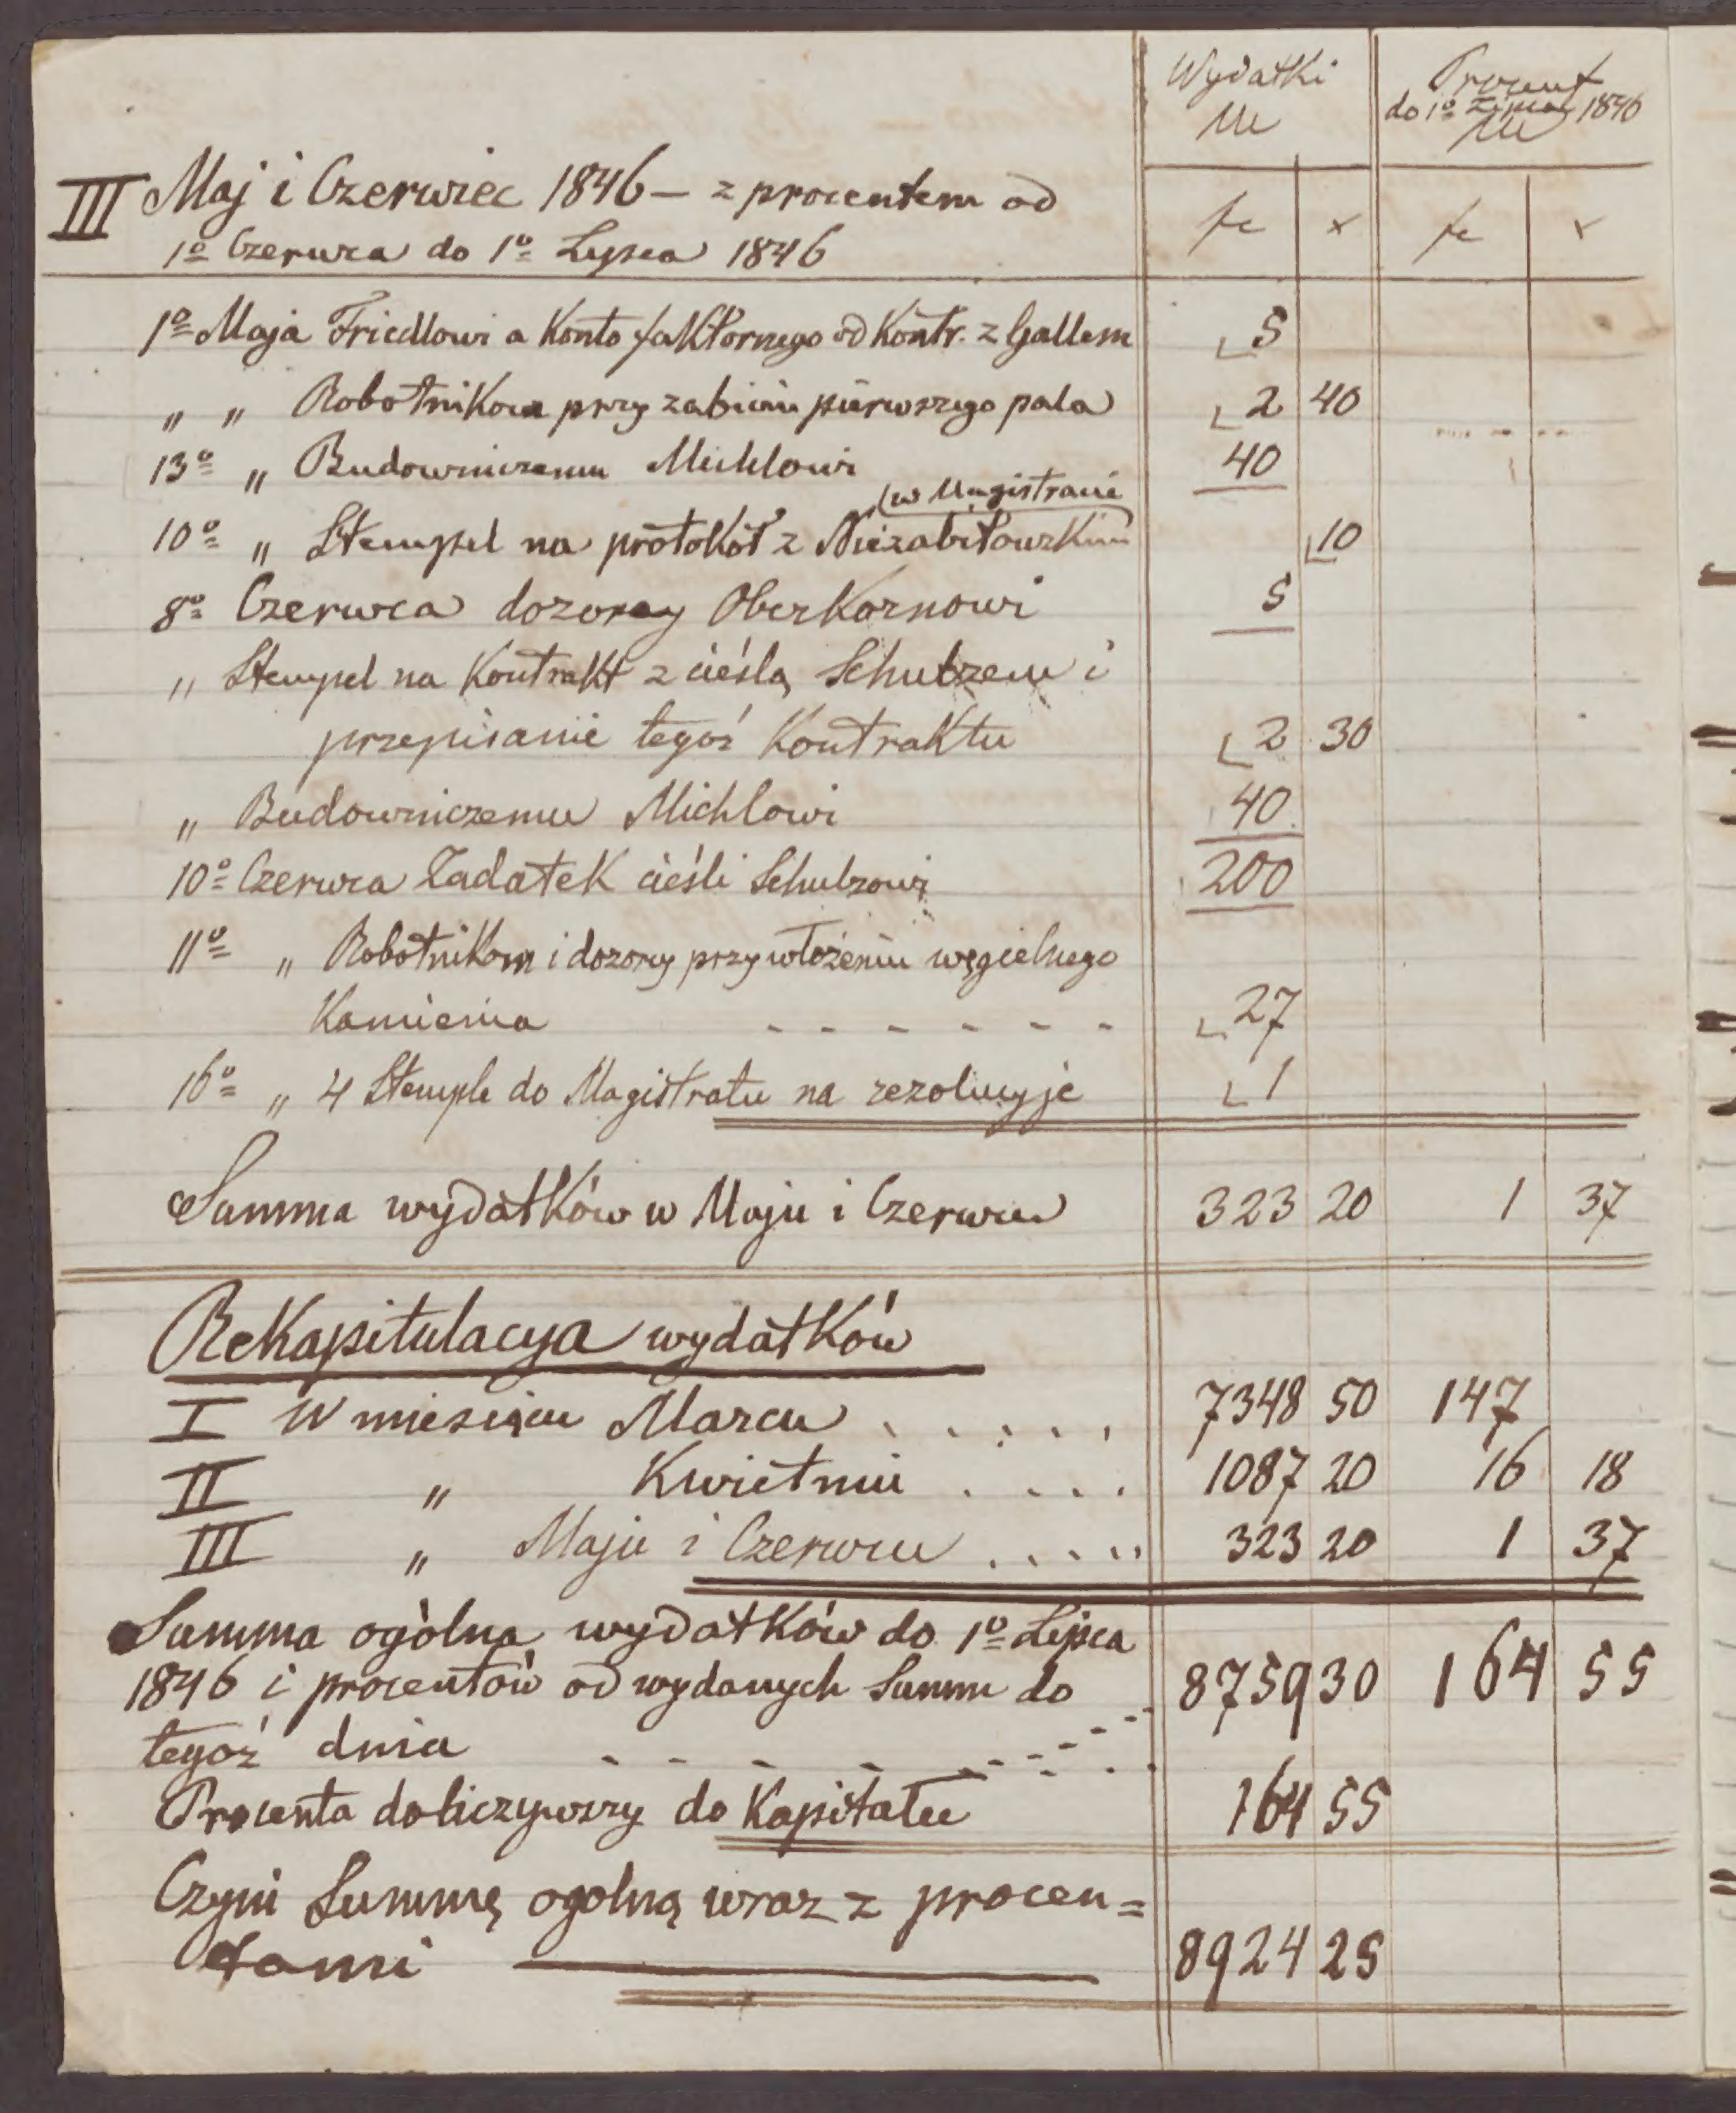 Wydatki
Procent
do 1º 1846
III Maj i Czerwiec 1846 — z procentem od
1º Czerwca do 1º Lipca 1846
fr x fr x
1º Maja Friedlowi a Konto faktornego od Kontr. z Gallem 5
„ „ Robotnikom przy zabiciu pierwszego pala 2 40
13º „ Budowniczemu Michlowi 40
(w Magistracie
10º „ Stempel na protokół z Niezabitowskim 10
8º Czerwca dozorcy Oberkornowi 5
„ Stempel na Kontrakt z cieślą Schulzem i
przepisanie tegoż Kontraktu 2 30
„ Budowniczemu Michlowi 40
10º Czerwca Zadatek cieśli Schulzowi 200
11º „ Robotnikom i dozorcy przy włożeniu węgielnego
Kamienia - - - - - - - 27
16º „ 4 Stemple do Magistratu na rezolucyje 1
Summa wydatków w Maju i Czerwcu 323 20 1 37
Rekapitulacya wydatków
I W miesiącu Marcu . . . . . . 7348 50 147
II „ Kwietniu . . . . . 1087 20 16 18
III „ Maju i Czerwcu . . . . . 323 20 1 37
Summa ogólna wydatków do 1º Lipca
1846 i procentów od wydanych Summ do 8759 30 164 55
tegoż dnia - - - - - - -
Procenta doliczywszy do Kapitału 164 55
Czyni Summę ogolną wraz z procen=
tami 8924 25